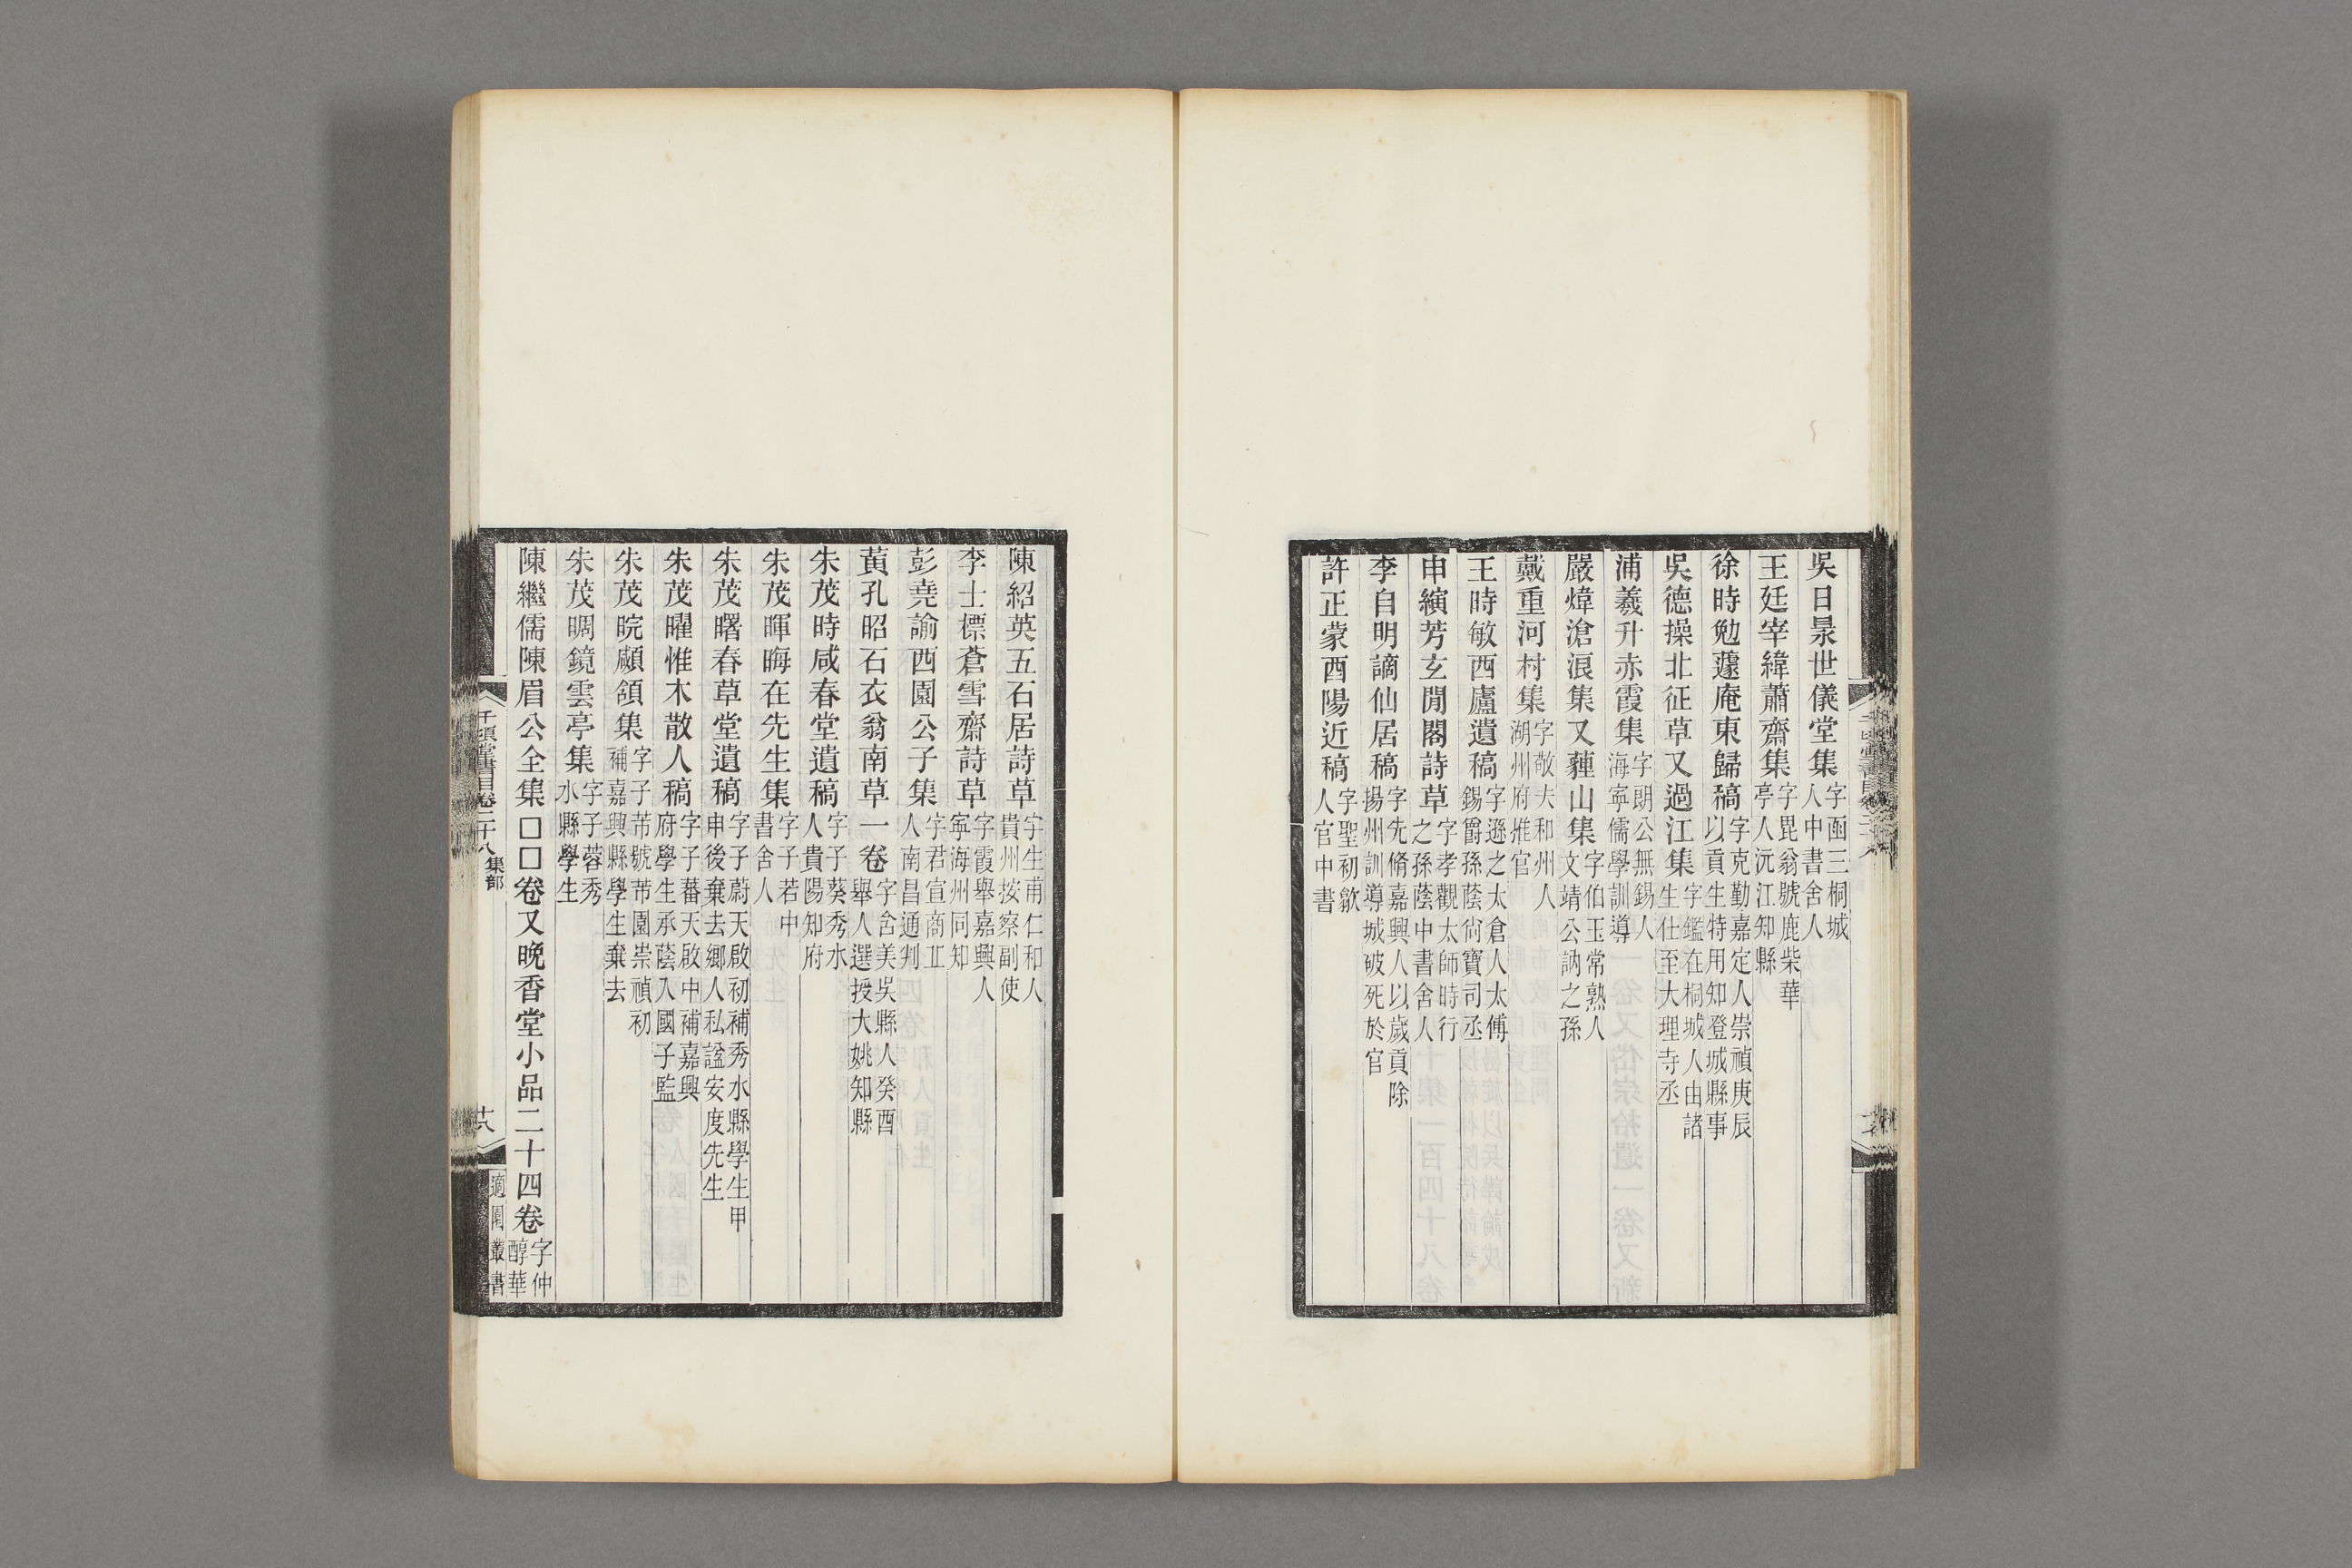 吳日㬌世儀堂集字函三桐城人中書舍人
王廷宰緯蕭齋集字毘翁號鹿柴華亭人沅江知縣
徐時勉蘧庵東歸稿字克勤嘉定人崇禎庚辰以貢生特用知登城縣事
吳德操北征草又過江集字鑑在桐城人由諸生仕至大理寺丞
浦羲升赤霞集字朗公無錫人海寧儒學訓導
嚴煒滄浪集又蘹山集字伯玉常熟人文靖公訥之孫
戴重河村集字敬夫和州人湖州府推官
王時敏西廬遺稿字遜之太倉人太傅錫爵孫蔭尙寶司丞
申繽芳玄閒閣詩草字孝觀太師時行之孫蔭中書舍人
李自明謫仙居稿字先脩嘉興人以歲貢除揚州訓導城破死於官
許正蒙酉陽近稿字聖初歙人官中書
陳紹英五石居詩草字生甫仁和人貴州按察副使
李士標蒼雪齋詩草字霞舉嘉興人寧海州同知
彭堯諭西園公子集字君宣商丘人南昌通判
黃孔昭石衣翁南草一卷字含美吳縣人癸酉舉人選授大姚知縣
朱茂時咸春堂遺稿字子葵秀水人貴陽知府
朱茂暉晦在先生集字子若中書舍人
朱茂曙春草堂遺稿字子蔚天啟初補秀水縣學生甲申後棄去鄉人私諡安度先生
朱茂曜惟木散人稿字子蕃天啟中補嘉興府學生承蔭入國子監
朱茂晥顑頷集字子芾號芾園崇禎初補嘉興縣學生棄去
朱茂晭鏡雲亭集字子蓉秀水縣學生
陳繼儒陳眉公全集□□卷又晚香堂小品二十四卷字仲醇華
千頃堂書目卷二十八 集部
十八
適園叢書